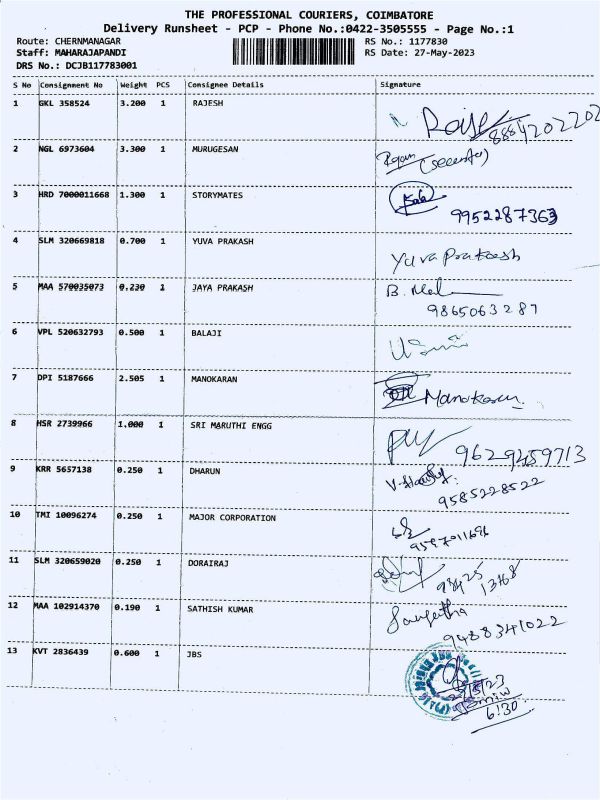 THE PROFESSIONAL COURIERS, COIMBATORE
Delivery Runsheet - PCP - Phone No.:0422-3505555 - Page No.:1
Route: CHERNMANAGAR RS No.: 1177830
Staff: MAHARAJAPANDI RS Date: 27-May-2023
DRS No.: DCJB117783001
S No Consignment No Weight PCS Consignee Details Signature
1 GKL 358524 3.200 1 RAJESH
2 NGL 6973604 3.300 1 MURUGESAN
3 HRD 7000011668 1.300 1 STORYMATES
9952287363
4 SLM 320669818 0.700 1 YUVA PRAKASH
Yuva Prakash
5 MAA 570035073 0.230 1 JAYA PRAKASH
9865063287
6 VPL 520632793 0.500 1 BALAJI
7 DPI 5187666 2.505 1 MANOKARAN
Manokaran
8 HSR 2739966 1.000 1 SRI MARUTHI ENGG
9629459713
9 KRR 5657138 0.250 1 DHARUN
9585228522
10 TMI 10096274 0.250 1 MAJOR CORPORATION
11 SLM 320659020 0.250 1 DORAIRAJ
98425
13168
12 MAA 102914370 0.190 1 SATHISH KUMAR
Sangeetha
9488341022
13 KVT 2836439 0.600 1 JBS
6:30